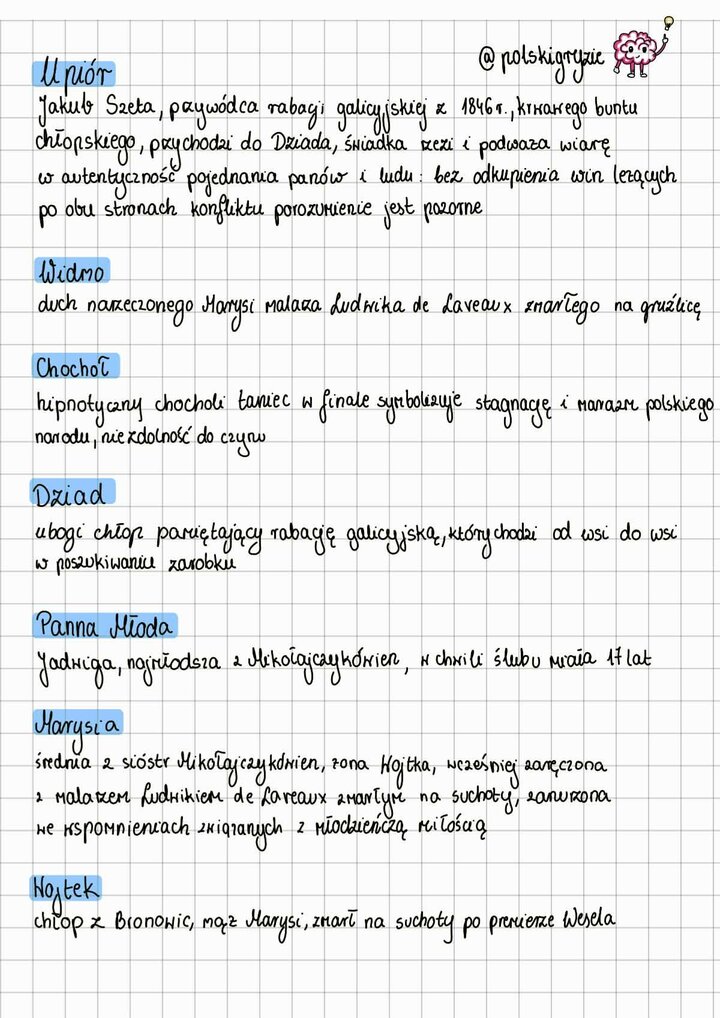 @polskigryzie
Upiór
Jakub Szela, przywódca rabacji galicyjskiej z 1846r., krwawego buntu
chłopskiego, przychodzi do Dziada, świadka rzezi i podważa wiarę
w autentyczność pojednania panów i ludu: bez odkupienia win leżących
po obu stronach konfliktu porozumienie jest pozorne
Widmo
duch narzeczonego Marysi malarza Ludwika de Laveaux zmarłego na gruźlicę
Chochoł
hipnotyczny chocholi taniec w finale symbolizuje stagnację i marazm polskiego
narodu, niezdolność do czynu
Dziad
ubogi chłop pamiętający rabację galicyjską, który chodzi od wsi do wsi
w poszukiwaniu zarobku
Panna Młoda
Jadwiga, najmłodsza z Mikołajczykówien, w chwili ślubu miała 17 lat
Marysia
średnia z sióstr Mikołajczykówien, żona Wojtka, wcześniej zaręczona
z malarzem Ludwikiem de Laveaux zmarłym na suchoty, zanurzona
we wspomnieniach związanych z młodzieńczą miłością
Wojtek
chłop z Bronowic, mąż Marysi, zmarł na suchoty po premierze Wesela